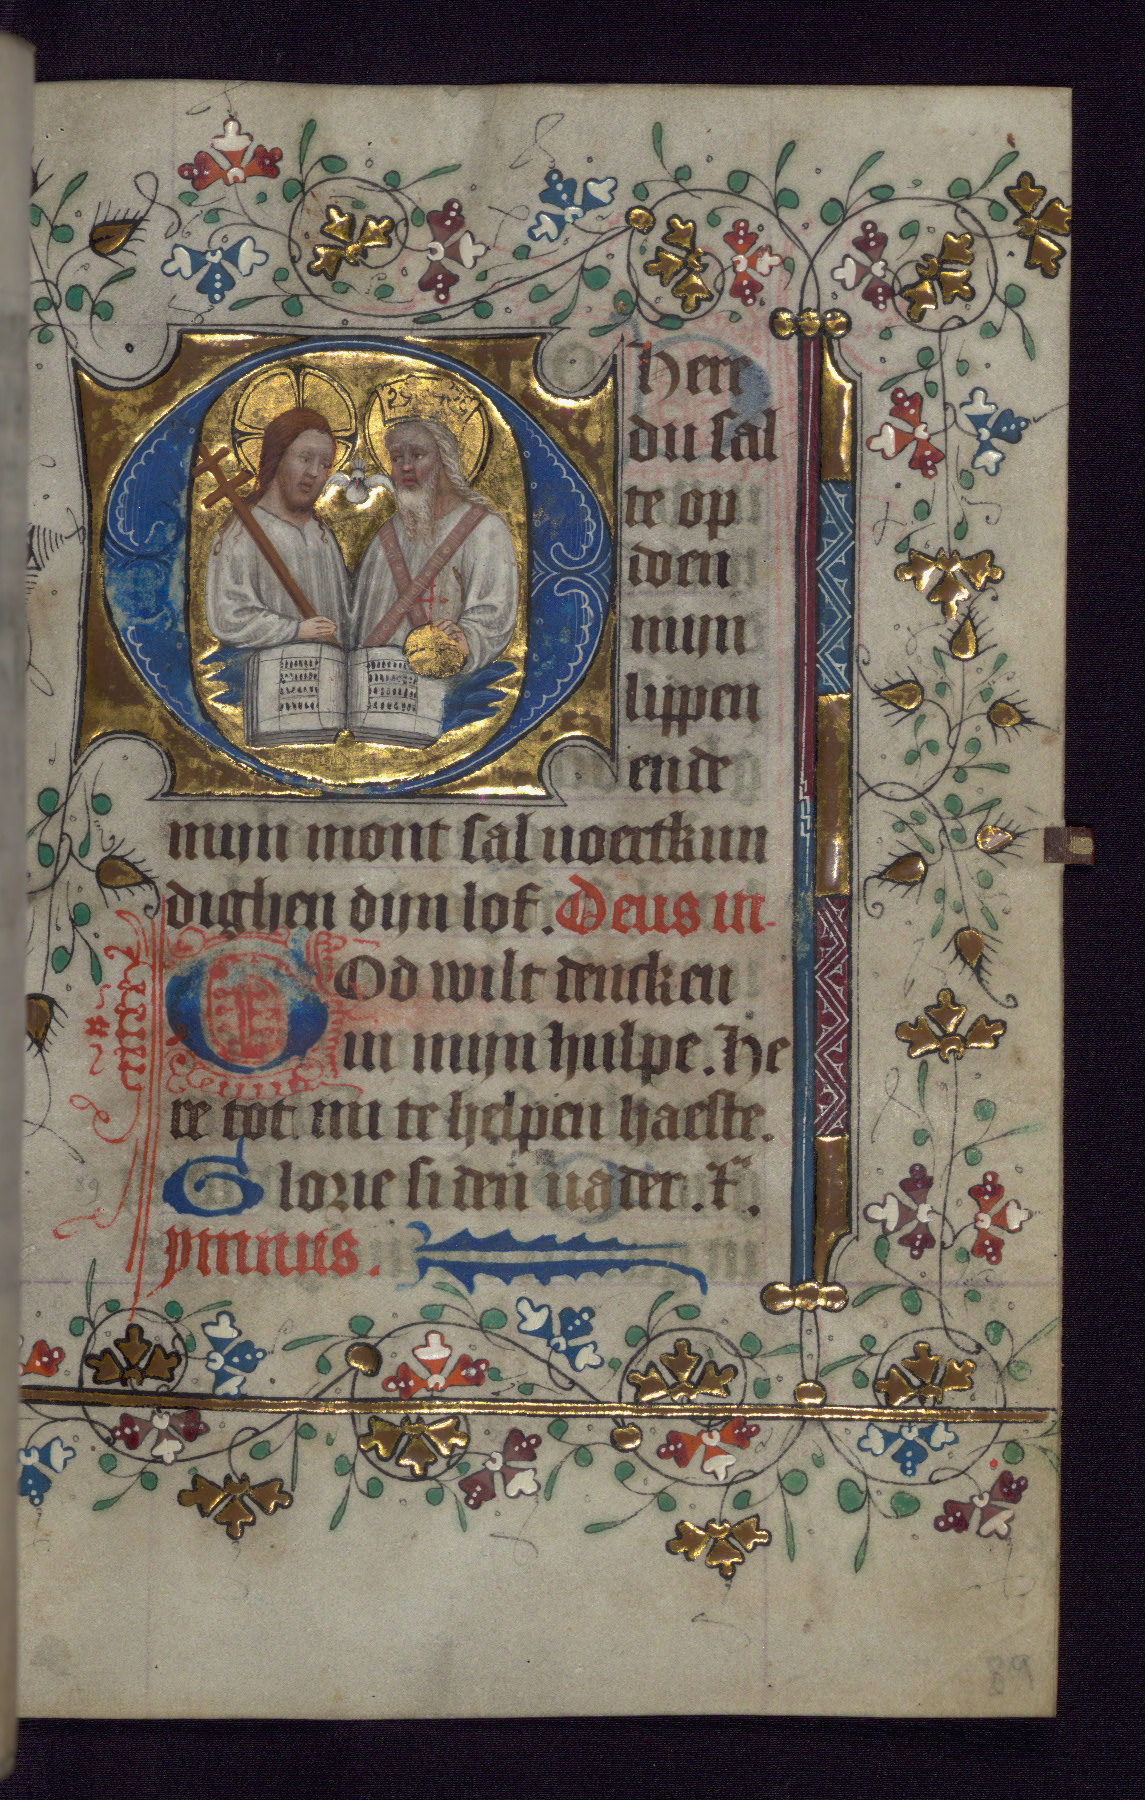 O here
du sal
te op
doen
mijn
lippen
ende
mijn mont sal voertkun
dighen dijn lof. Deus in
God wilt dencken
in mijn hulpe. He
re tot mi te helpen haeste.
Glorie si den vader. F.
ymnus.